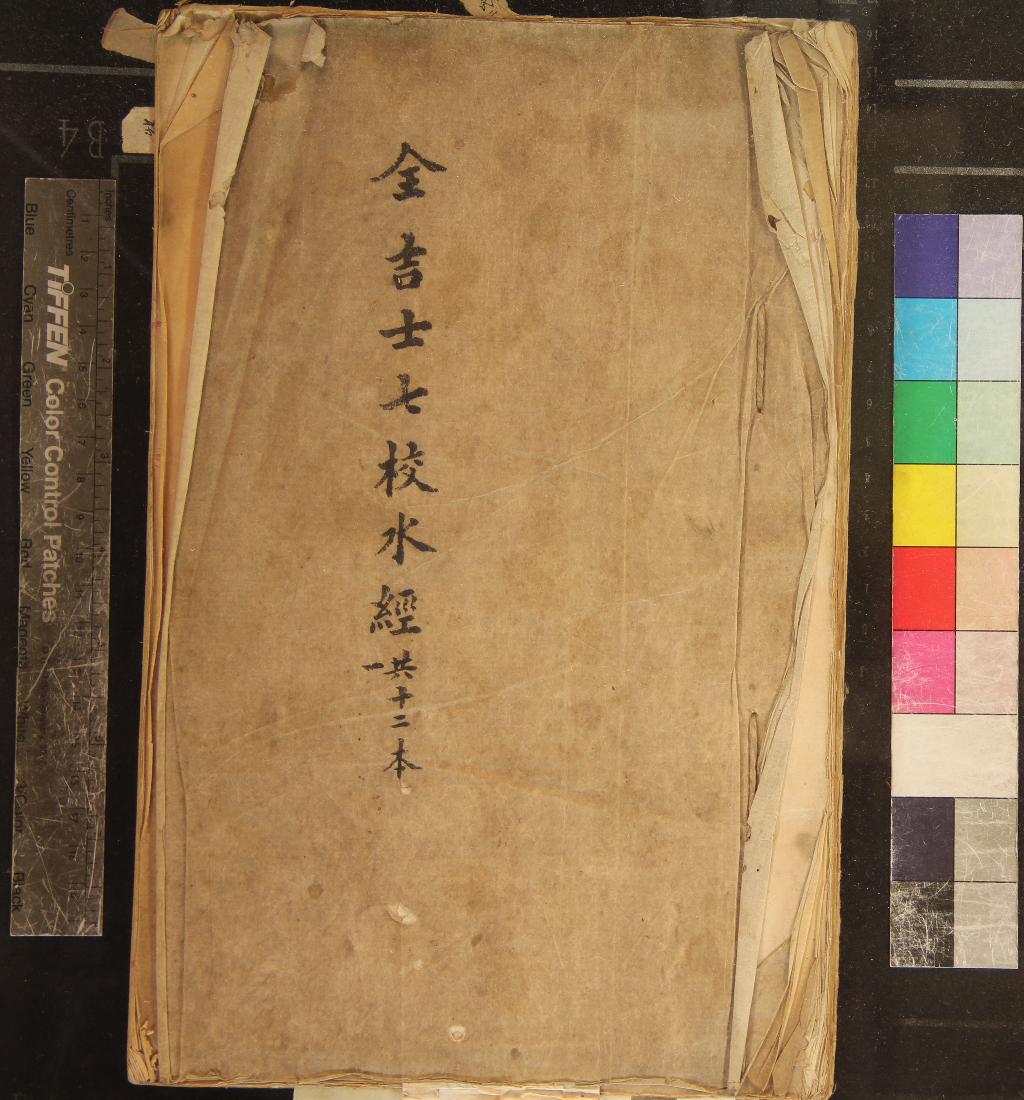 全吉士七校水經 共十二本
一
B4
Inches
Centimetres
TIFFEN Color Control Patches
Blue
Cyan
Green
Yellow
Red
Magenta
White
3/Color
Black